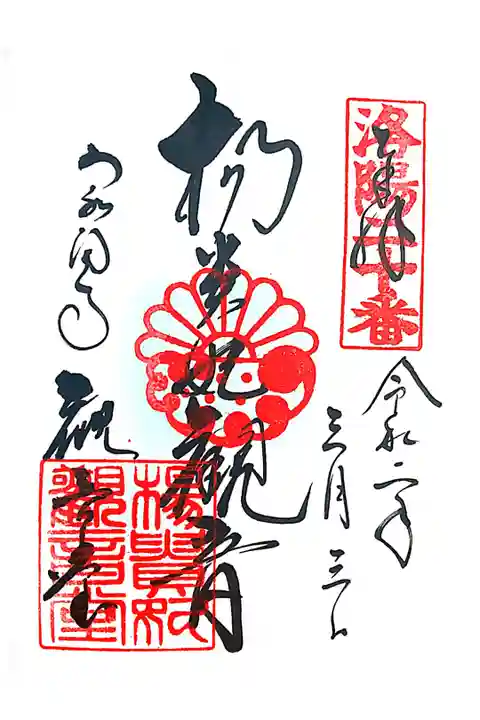 洛陽二十番
奉拝
令和二年
三月三日
楊貴妃観音
泉涌寺
観音堂
楊貴妃
觀音堂